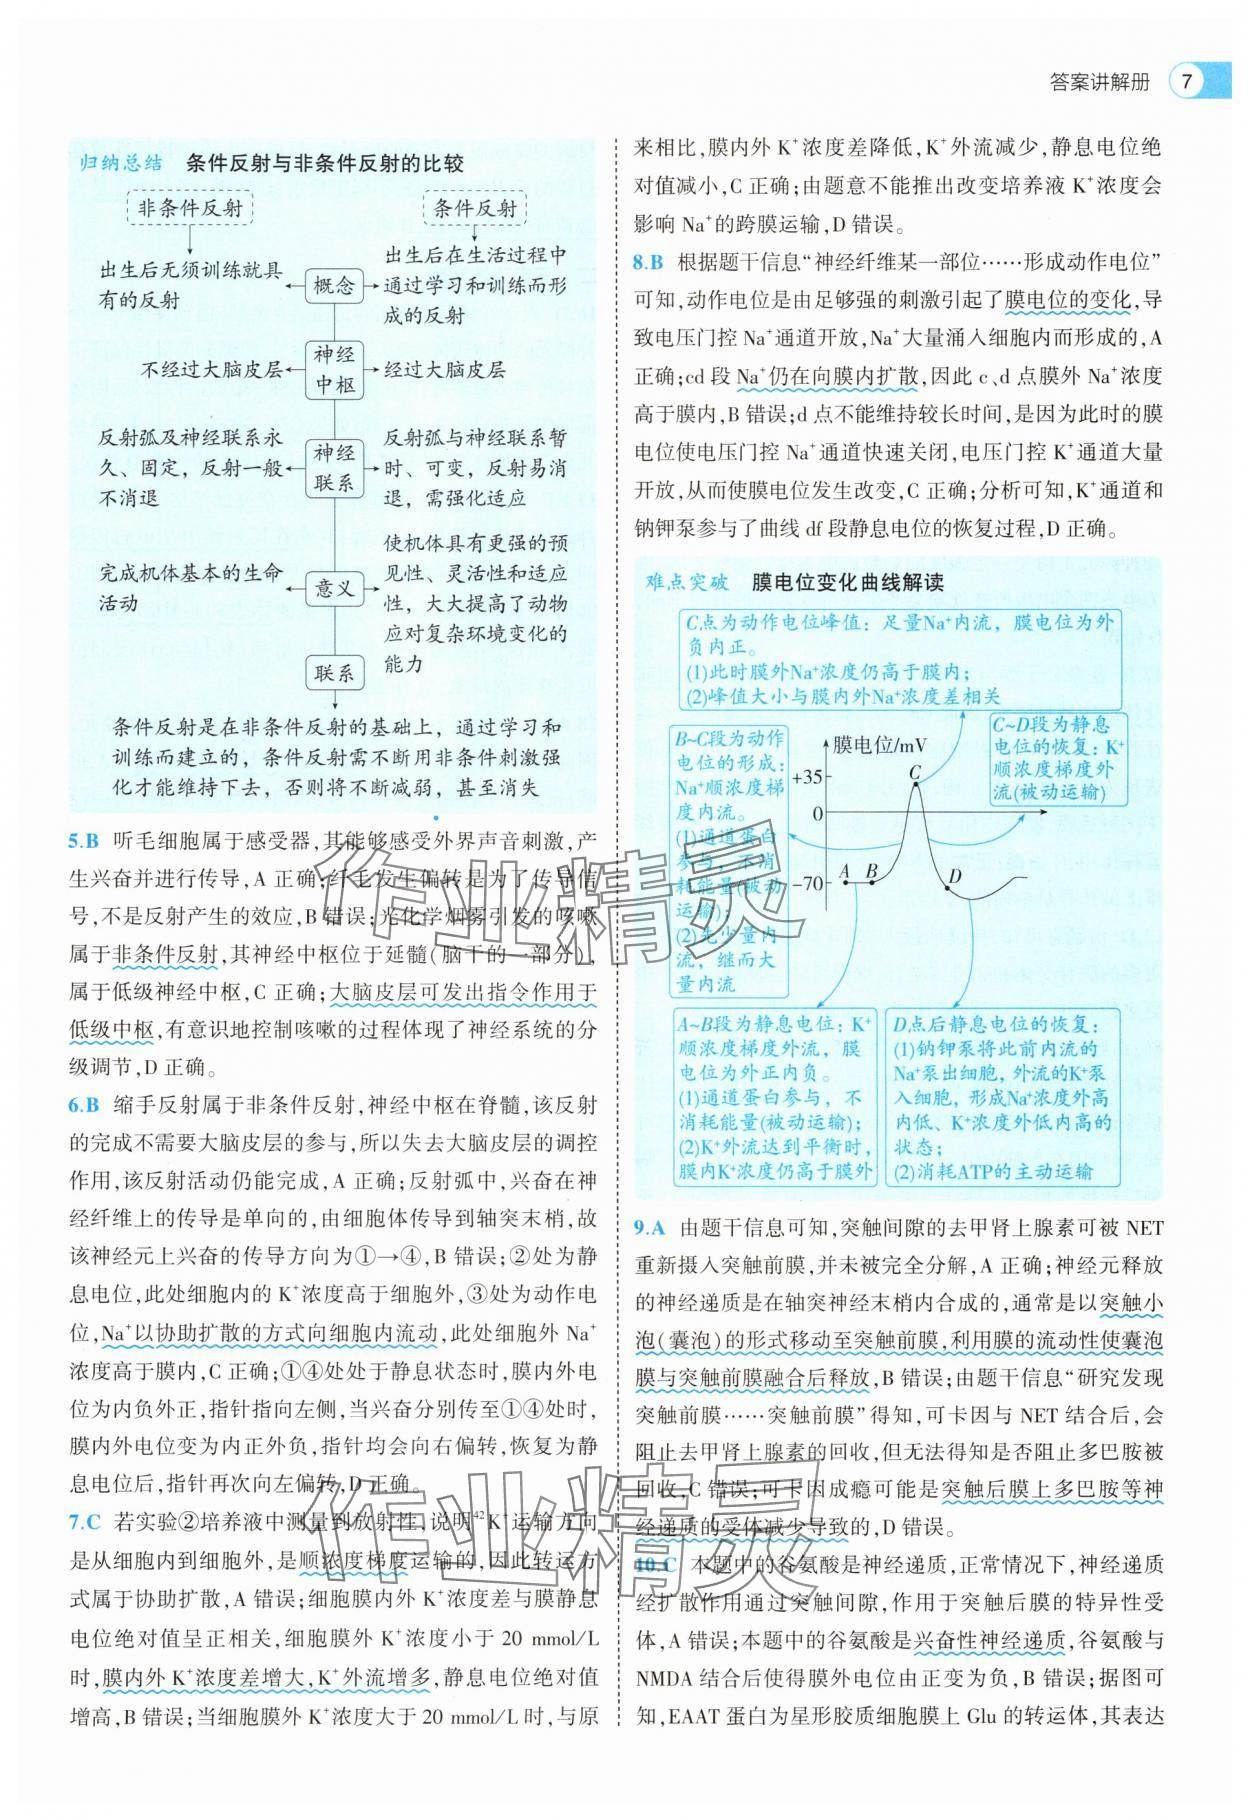 答案讲解册 7
归纳总结 条件反射与非条件反射的比较
非条件反射 条件反射
出生后无须训练就具
有的反射
概念
出生后在生活过程中
通过学习和训练而形
成的反射
不经过大脑皮层
神经
中枢
经过大脑皮层
反射弧及神经联系永
久、固定，反射一般
不消退
神经
联系
反射弧与神经联系暂
时、可变，反射易消
退，需强化适应
完成机体基本的生命
活动
意义
使机体具有更强的预
见性、灵活性和适应
性，大大提高了动物
应对复杂环境变化的
能力
联系
条件反射是在非条件反射的基础上，通过学习和
训练而建立的，条件反射需不断用非条件刺激强
化才能维持下去，否则将不断减弱，甚至消失
5.B 听毛细胞属于感受器,其能够感受外界声音刺激,产
生兴奋并进行传导,A 正确;纤毛发生偏转是为了传导信
号,不是反射产生的效应,B 错误;光化学烟雾引发的咳嗽
属于非条件反射,其神经中枢位于延髓(脑干的一部分),
属于低级神经中枢,C 正确;大脑皮层可发出指令作用于
低级中枢,有意识地控制咳嗽的过程体现了神经系统的分
级调节,D 正确。
6.B 缩手反射属于非条件反射,神经中枢在脊髓,该反射
的完成不需要大脑皮层的参与,所以失去大脑皮层的调控
作用,该反射活动仍能完成,A 正确;反射弧中,兴奋在神
经纤维上的传导是单向的,由细胞体传导到轴突末梢,故
该神经元上兴奋的传导方向为①→④,B 错误;②处为静
息电位,此处细胞内的 K⁺浓度高于细胞外,③处为动作电
位,Na⁺以协助扩散的方式向细胞内流动,此处细胞外 Na⁺
浓度高于膜内,C 正确;①④处处于静息状态时,膜内外电
位为内负外正,指针指向左侧,当兴奋分别传至①④处时,
膜内外电位变为内正外负,指针均会向右偏转,恢复为静
息电位后,指针再次向左偏转,D 正确。
7.C 若实验②培养液中测量到放射性,说明⁴²K⁺运输方向
是从细胞内到细胞外,是顺浓度梯度运输的,因此转运方
式属于协助扩散,A 错误;细胞膜内外 K⁺浓度差与膜静息
电位绝对值呈正相关,细胞膜外 K⁺浓度小于 20 mmol/L
时,膜内外 K⁺浓度差增大,K⁺外流增多,静息电位绝对值
增高,B 错误;当细胞膜外 K⁺浓度大于 20 mmol/L 时,与原
来相比,膜内外 K⁺浓度差降低,K⁺外流减少,静息电位绝
对值减小,C 正确;由题意不能推出改变培养液 K⁺浓度会
影响 Na⁺的跨膜运输,D 错误。
8.B 根据题干信息“神经纤维某一部位……形成动作电位”
可知,动作电位是由足够强的刺激引起了膜电位的变化,导
致电压门控 Na⁺通道开放,Na⁺大量涌入细胞内而形成的,A
正确;cd 段 Na⁺仍在向膜内扩散,因此 c、d 点膜外 Na⁺浓度
高于膜内,B 错误;d 点不能维持较长时间,是因为此时的膜
电位使电压门控 Na⁺通道快速关闭,电压门控 K⁺通道大量
开放,从而使膜电位发生改变,C 正确;分析可知,K⁺通道和
钠钾泵参与了曲线 df 段静息电位的恢复过程,D 正确。
难点突破 膜电位变化曲线解读
C点为动作电位峰值：足量Na⁺内流，膜电位为外
负内正。
(1)此时膜外Na⁺浓度仍高于膜内；
(2)峰值大小与膜内外Na⁺浓度差相关
B~C段为动作
电位的形成：
Na⁺顺浓度梯
度内流。
(1)通道蛋白
参与，不消
耗能量(被动
运输)；
(2)先少量内
流，继而大
量内流
膜电位/mV
+35
0
-70
A
B
C
D
C~D段为静息
电位的恢复：K⁺
顺浓度梯度外
流(被动运输)
A~B段为静息电位：K⁺
顺浓度梯度外流，膜
电位为外正内负。
(1)通道蛋白参与，不
消耗能量(被动运输)；
(2)K⁺外流达到平衡时，
膜内K⁺浓度仍高于膜外
D点后静息电位的恢复：
(1)钠钾泵将此前内流的
Na⁺泵出细胞，外流的K⁺泵
入细胞，形成Na⁺浓度外高
内低、K⁺浓度外低内高的
状态；
(2)消耗ATP的主动运输
9.A 由题干信息可知,突触间隙的去甲肾上腺素可被 NET
重新摄入突触前膜,并未被完全分解,A 正确;神经元释放
的神经递质是在轴突神经末梢内合成的,通常是以突触小
泡(囊泡)的形式移动至突触前膜,利用膜的流动性使囊泡
膜与突触前膜融合后释放,B 错误;由题干信息“研究发现
突触前膜……突触前膜”得知,可卡因与 NET 结合后,会
阻止去甲肾上腺素的回收,但无法得知是否阻止多巴胺被
回收,C 错误;可卡因成瘾可能是突触后膜上多巴胺等神
经递质的受体减少导致的,D 错误。
10.C 本题中的谷氨酸是神经递质,正常情况下,神经递质
经扩散作用通过突触间隙,作用于突触后膜的特异性受
体,A 错误;本题中的谷氨酸是兴奋性神经递质,谷氨酸与
NMDA 结合后使得膜外电位由正变为负,B 错误;据图可
知,EAAT 蛋白为星形胶质细胞膜上 Glu 的转运体,其表达
作业精灵
作业精灵